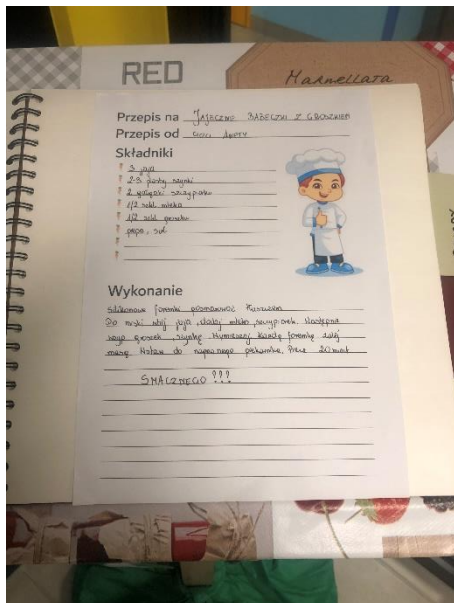 RED
Marmellata
Przepis na JAJECZNE BABECZKI Z GROSZKIEM
Przepis od cioci Agaty
Składniki
3 jaja
2-3 plastry szynki
2 gałązki szczypioru
1/2 szkl. mleka
1/2 szkl. groszku
pieprz, sól
Wykonanie
Silikonowe foremki posmarować tłuszczem
Do miski wbij jaja, dodaj mleko, szczypiorek. Następnie
groszek, szynkę. Wymieszaj. Każdą foremkę zalej
masą. Wstaw do nagrzanego piekarnika. Piecz 20 minut
SMACZNEGO !!!